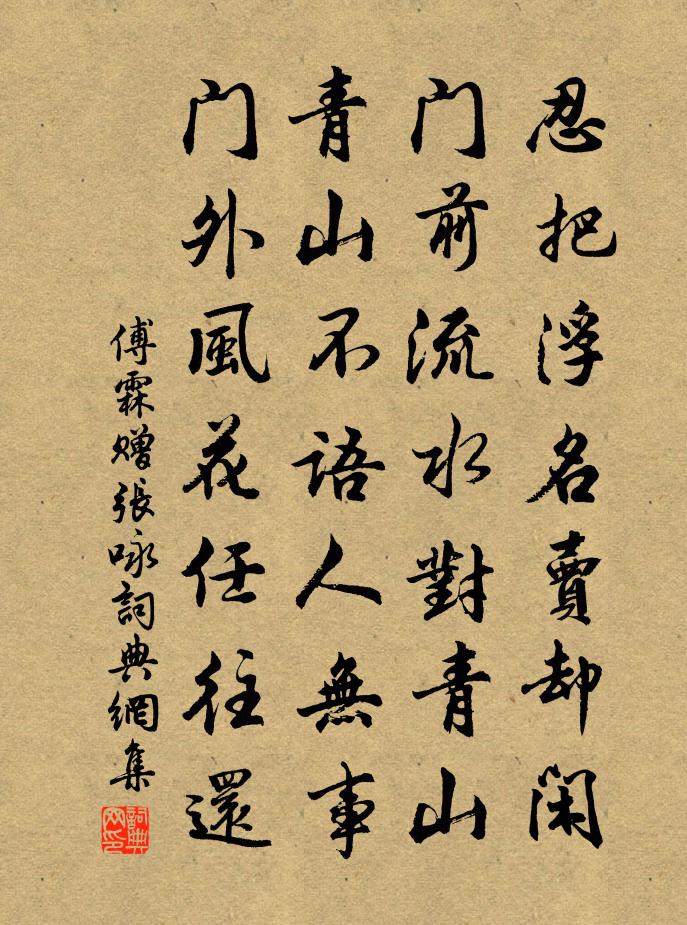 忍把浮名賣却閑
门前流水對青山
青山不語人無事
门外風花任往還
傅霖赠張咏詞典網集
詞典网印